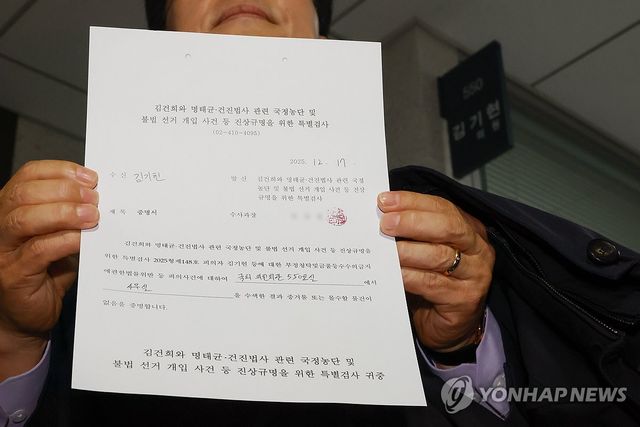 김건희와 명태균·건진법사 관련 국정농단 및
불법 선거 개입 사건 등 진상규명을 위한 특별검사
(02-410-4095)
2025. 12. 17.
수 신 김기현
발 신 김건희와 명태균·건진법사 관련 국정
농단 및 불법 선거 개입 사건 등 진상
규명을 위한 특별검사
제 목 증명서
수사과장
김건희와 명태균·건진법사 관련 국정농단 및 불법 선거 개입 사건 등 진상규명을
위한 특별검사 2025형제148호 피의자 김기현 등에 대한 부정청탁및금품등수수의금지
에관한법률위반 등 피의사건에 대하여 국회 의원회관 550호실 에서
사무실
을 수색한 결과 증거물 또는 몰수할 물건이
없음을 증명합니다.
김건희와 명태균·건진법사 관련 국정농단 및
불법 선거 개입 사건 등 진상규명을 위한 특별검사 귀중
550
김기현
의원
YONHAP NEWS